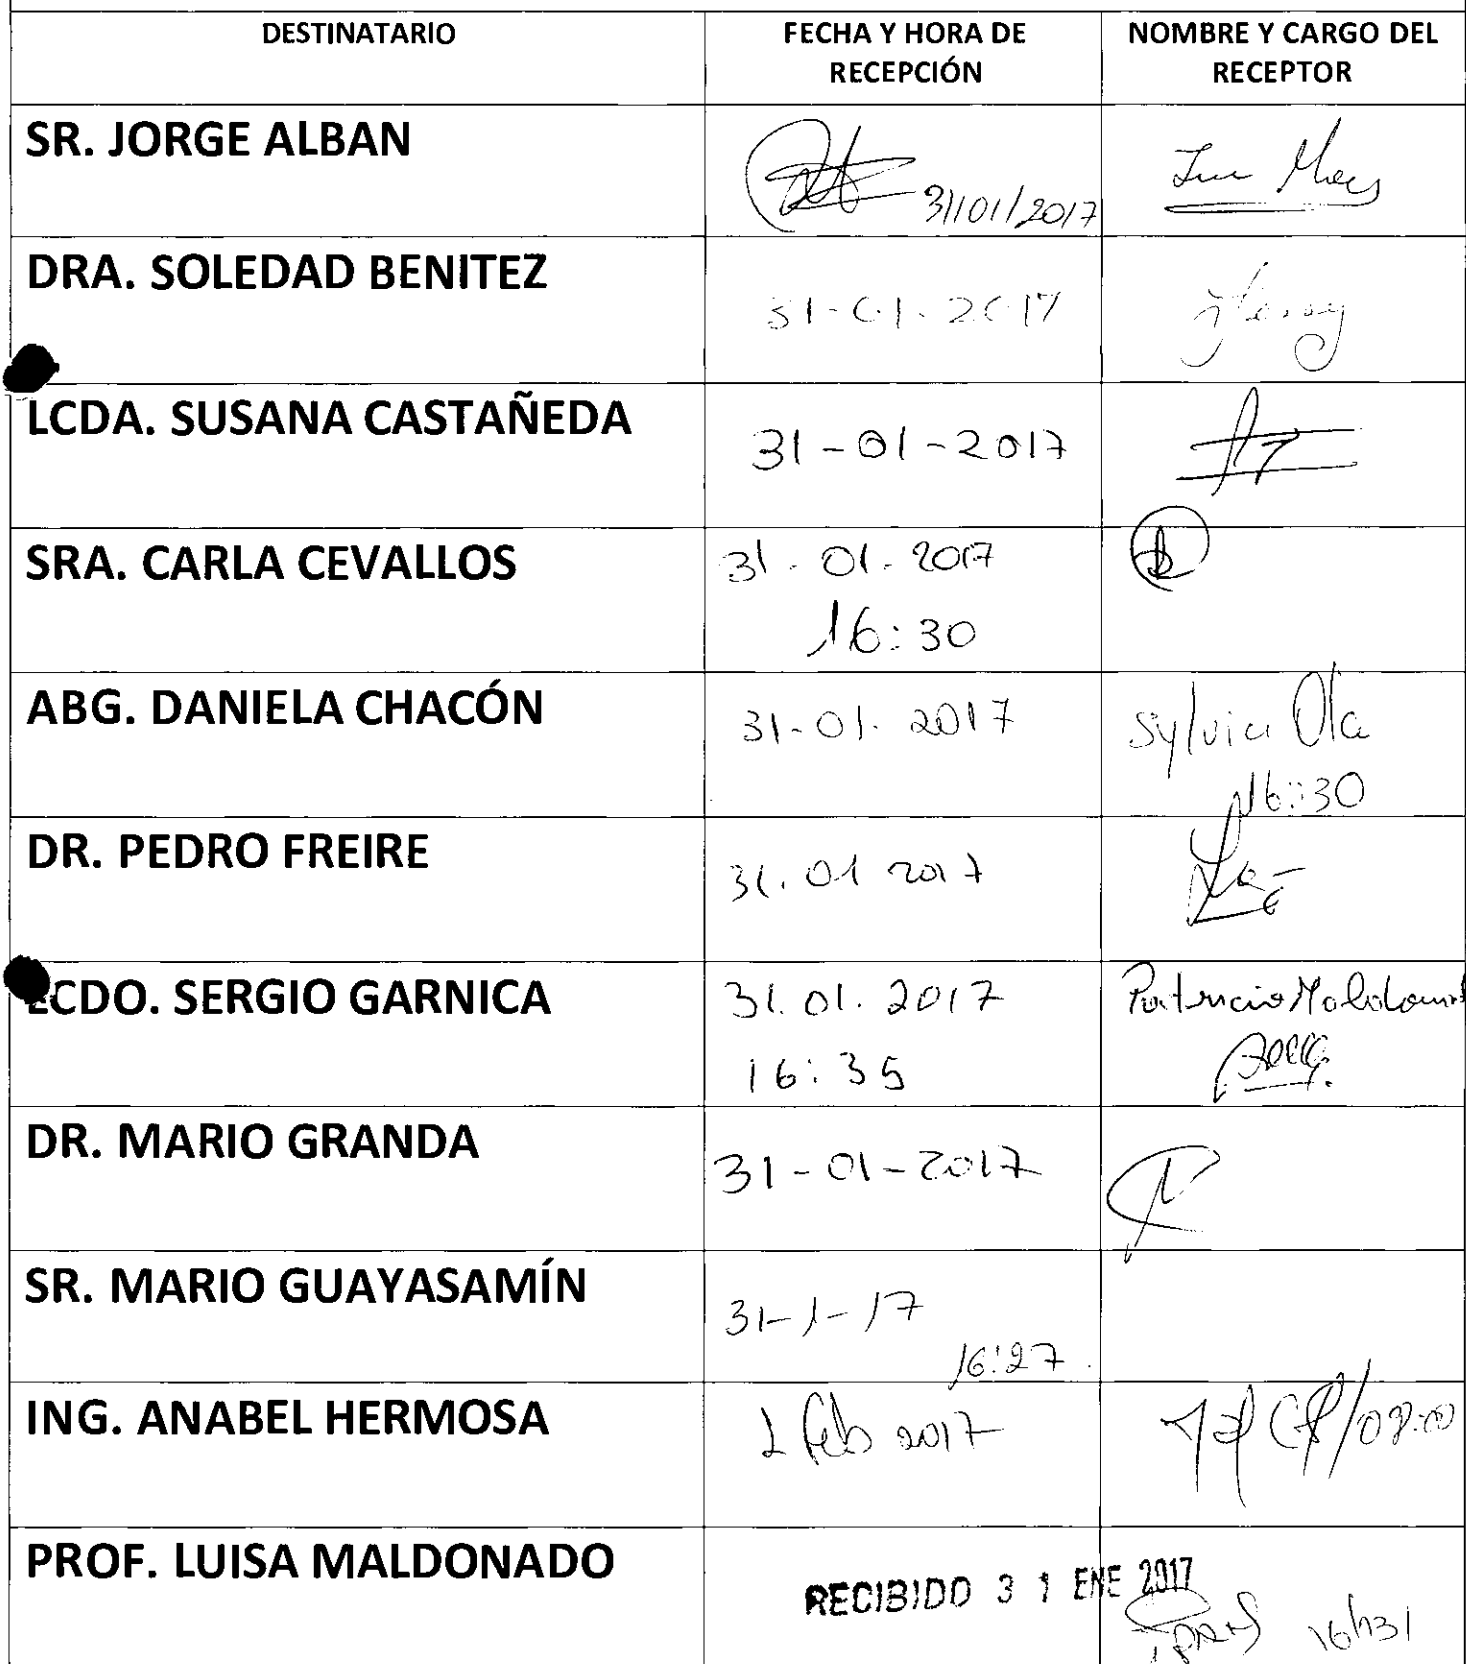 DESTINATARIO
FECHA Y HORA DE
RECEPCIÓN
NOMBRE Y CARGO DEL
RECEPTOR
SR. JORGE ALBAN
31/01/2017
DRA. SOLEDAD BENITEZ
31-01-2017
LCDA. SUSANA CASTAÑEDA
31-01-2017
SRA. CARLA CEVALLOS
31.01.2017
16:30
ABG. DANIELA CHACÓN
31-01.2017
Sylvia
16:30
DR. PEDRO FREIRE
31.01 2017
LCDO. SERGIO GARNICA
31.01.2017
Patricio Maldonado
16:35
DR. MARIO GRANDA
31-01-2017
SR. MARIO GUAYASAMÍN
31-1-17
16:27
ING. ANABEL HERMOSA
1 feb 2017
PROF. LUISA MALDONADO
RECIBIDO 31 ENE 2017
16h31